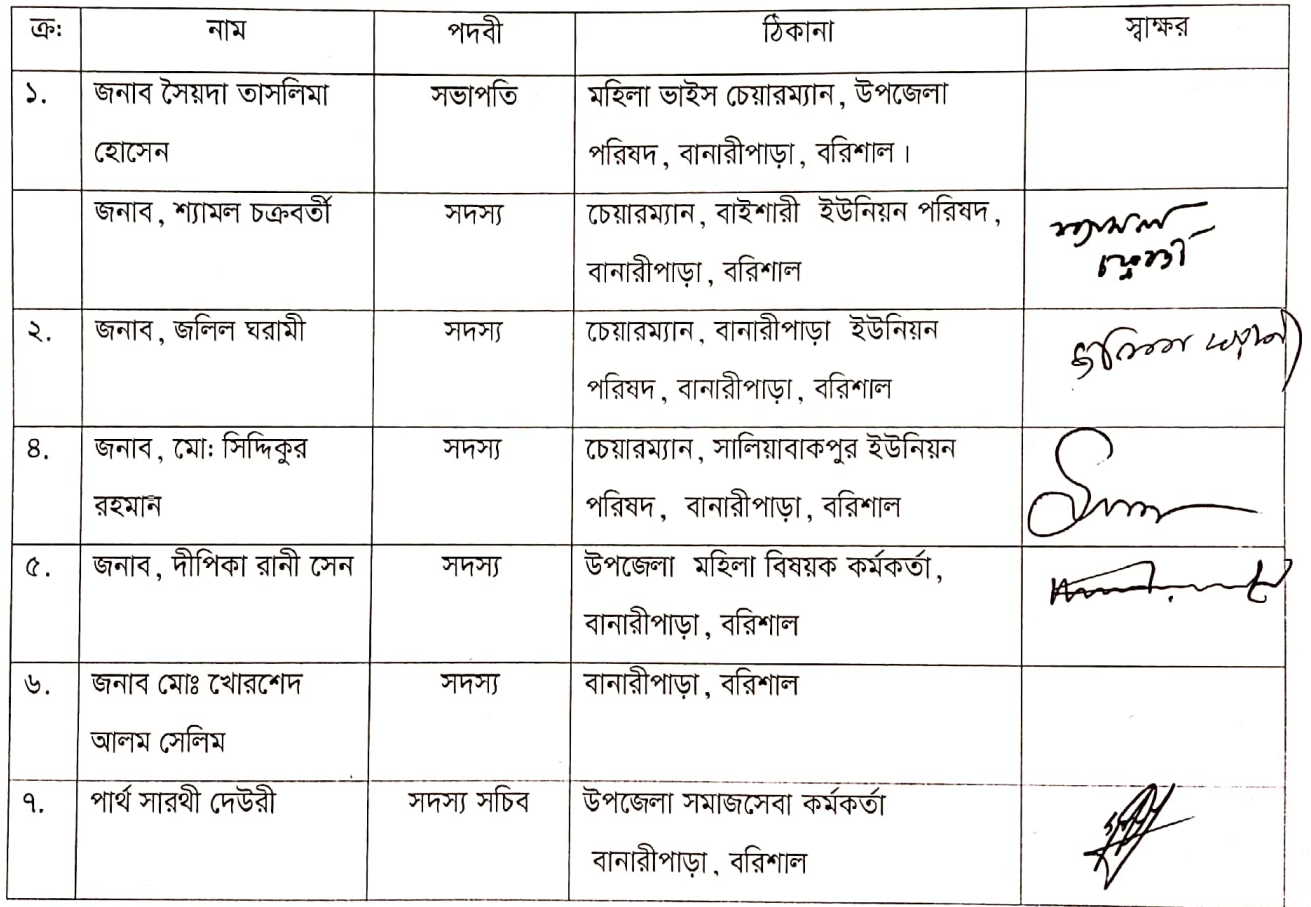 ক্র: নাম পদবী ঠিকানা স্বাক্ষর
১. জনাব সৈয়দা তাসলিমা সভাপতি মহিলা ভাইস চেয়ারম্যান, উপজেলা
হোসেন পরিষদ, বানারীপাড়া, বরিশাল।
জনাব, শ্যামল চক্রবর্তী সদস্য চেয়ারম্যান, বাইশারী ইউনিয়ন পরিষদ, শ্যামল
বানারীপাড়া, বরিশাল
২. জনাব, জলিল ঘরামী সদস্য চেয়ারম্যান, বানারীপাড়া ইউনিয়ন
পরিষদ, বানারীপাড়া, বরিশাল
৪. জনাব, মো: সিদ্দিকুর সদস্য চেয়ারম্যান, সালিয়াবাকপুর ইউনিয়ন
রহমান পরিষদ, বানারীপাড়া, বরিশাল
৫. জনাব, দীপিকা রানী সেন সদস্য উপজেলা মহিলা বিষয়ক কর্মকর্তা,
বানারীপাড়া, বরিশাল
৬. জনাব মোঃ খোরশেদ সদস্য বানারীপাড়া, বরিশাল
আলম সেলিম
৭. পার্থ সারথী দেউরী সদস্য সচিব উপজেলা সমাজসেবা কর্মকর্তা
বানারীপাড়া, বরিশাল